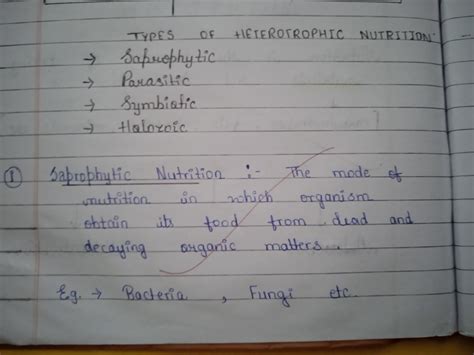 TYPES OF HETEROTROPHIC NUTRITION
→ Saprophytic
→ Parasitic
→ Symbiotic
→ Holozoic
① Saprophytic Nutrition :- The mode of
nutrition in which organism
obtain its food from dead and
decaying organic matters.
Eg. → Bacteria , Fungi etc.